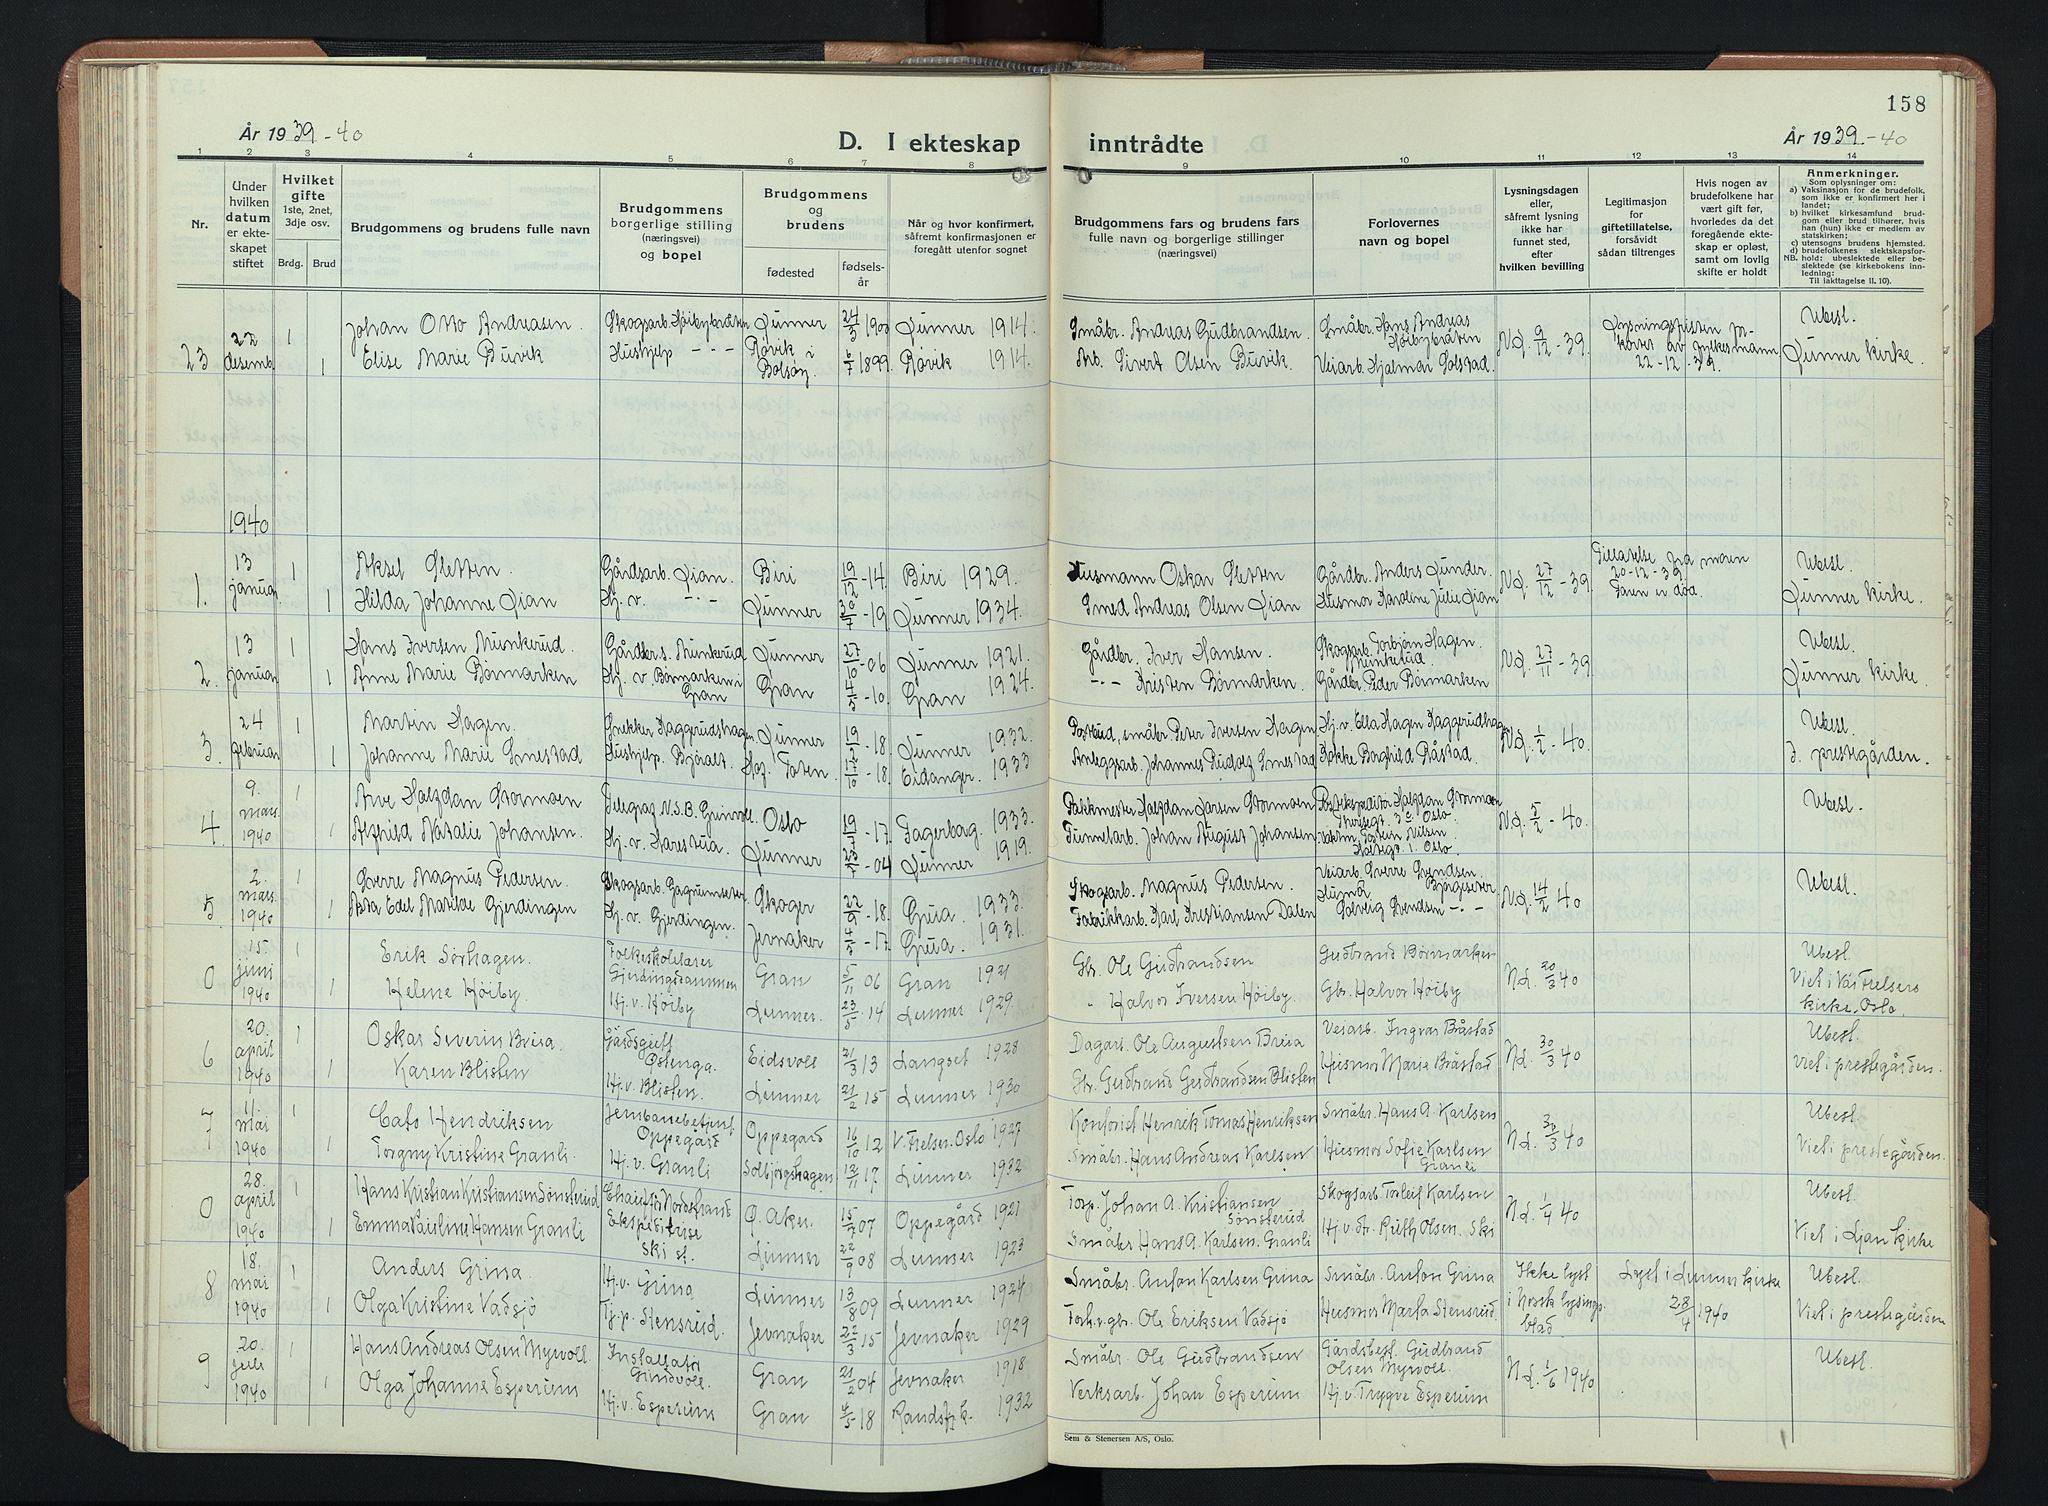 158
År 1939-40
D. I ekteskap inntrådte
År 1939-40
1 2 3 4 5 6 7 8 9 10 11 12 13 14
Nr.
Under hvilken datum er ekteskapet stiftet
Hvilket gifte 1ste, 2net, 3dje osv.
Brdg. Brud
Brudgommens og brudens fulle navn
Brudgommens borgerlige stilling (næringsvei) og bopel
Brudgommens og brudens
fødested
fødselsår
Når og hvor konfirmert, såfremt konfirmasjonen er foregått utenfor sognet
Brudgommens fars og brudens fars fulle navn og borgerlige stillinger (næringsvei)
Forlovernes navn og bopel
Lysningsdagen eller, såfremt lysning ikke har funnet sted, efter hvilken bevilling
Legitimasjon for giftetillatelse, forsåvidt sådan tiltrenges
Hvis nogen av brudefolkene har vært gift før, hvorledes da det foregående ekteskap er opløst, samt om lovlig skifte er holdt
Anmerkninger.
Som oplysninger om:
a) Vaksinasjon for de brudefolk, som ikke er konfirmert her i landet;
b) hvilket kirkesamfund brudgom eller brud tilhører, hvis han (hun) ikke er medlem av statskirken;
c) utensogns brudens hjemsted.
d) brudefolkenes slektskapsforhold: ubeslektede eller beslektede (se kirkebokens innledning:
NB.
Til iakttagelse II. 10).
23 22 desemb. 1 Johan Otto Andreasen. Skogsarb. Høibybråten Lunner 24/3 1900 Lunner 1914. Småbr. Andreas Gudbrandsen. Småbr. Hans Andreas Høibybråten N.d. 9/12 - 39. Lysningsfristen forkortet av fylkesmann 22-12-39. Ubesl.
1 Elise Marie Buvik Hushjelp - - - Røvik i Bolsøy. 6/7 1899. Røvik 1914. Arb. Sivert Olsen Buvik. Veiarb. Hjalmar Solstad. Lunner kirke.
1940
1. 13 januar 1 Aksel Sletten. Gårdsarb. Lian. Biri 19/12 - 14. Biri 1929. Husmann Oskar Sletten Gårdbr. Anders Lunder. N.d. 27/12 - 39. Tillatelse fra moren 20-12-39 Faren er død. Ubesl.
1 Hilda Johanne Lian Hj. v. - - Lunner 30/7 - 19. Lunner 1934. Smed Andreas Olsen Lian Husmor Karoline Julie Lian Lunner kirke.
2. 13 januar 1 Hans Iversen Munkerud. Gårdbr. s. Munkerud Lunner 27/10 - 06 Lunner 1921. Gårdbr. Iver Hansen. Skogsarb. Torbjørn Hagen. Munkerud. N.d. 27/11 - 39 Ubesl.
1 Anne Marie Børmarken Hj. v. Børmarken i Gran Gran 4/5 - 10. Gran 1924. - - - Kristen Børmarken. Gårdbr. Peder Børmarken Lunner kirke.
3. 24 februar 1 Martin Hagen. Snekker Haggerudshagen Lunner 19/2 - 18. Lunner 1932. Postbud, småbr. Peter Iversen Hagen Hj. v. Ella Hagen Haggerudhag N.d. 1/2 - 40. Ubesl.
1 Johanne Marie Smestad Hushjelp Bjøralt. Toten. - 18. Eidanger. 1933 Anleggsarb. Johannes Rudolf Smestad Kokke Borghild Råstad. I prestegården.
4 9. mars 1940 1 Arve Halfdan Stormoen Telegraf N.S.B. Grinvoll Oslo 19/7 - 17. Fagerborg. 1933. Pakkmester Halfdan Larsen Stormoen Postekspeditør Halfdan Stormoen Oslo. N.d. 5/2 - 40. Ubesl.
1 Alfhild Natalie Johansen. Hj. v. Harestua. Lunner - 04 Lunner 1919. Tunnelarb. Johan August Johansen Nilsen Oslo.
5 2. mars 1940 1 Sverre Magnus Pedersen. Skogsarb. Skoger 22/9 - 18. Grua. 1933. Skogsarb. Magnus Pedersen. Veiarb. Sverre Svendsen. N.d. 14/2 40 Ubesl.
1 Asta Edel Matilde Gjerdingen Hj. v. Gjerdingen. Jevnaker 4/5 - 17. Grua. 1931. Fabrikkarb. Karl Kristiansen Dalen Solveig Svendsen - - -
0 15. juni 1940 1 Erik Sørhagen. Folkeskolelærer Gjerdingsdammen Gran 5/11 06 Gran 1921 Gbr. Ole Gudbrandsen Gudbrand Børmarken N.d. 20/3 40 Ubesl.
1 Helene Høiby. Hj. v. Høiby Lunner. 23/5 - 14 Lunner 1929. " Halvor Iversen Høiby. Gbr. Halvor Høiby Viet i Vår Frelsers kirke, Oslo.
6 20. april 1940 1 Oskar Severin Brua. Gårdsgutt Østenga. Eidsvoll 21/3 13 Langset 1928 Dagarb. Ole Augustsen Brua Veiarb. Ingvar Bråstad N.d. 30/3 40 Ubesl.
1 Karen Blisten Hj. v. Blisten. Lunner 21/2 15 Lunner 1930 Gbr. Gudbrand Gudbrandsen Blisten Husmor Marie Bråstad viet i prestegården.
7 11. mai 1940 1 Cato Hendriksen Jernbanebetjent Oppegård Oppegård 16/10 12 V. Frelser. Oslo 1927 Kontorist Henrik Tomas Henriksen Småbr. Hans A. Karlsen N.d. 30/3 40 Ubesl.
1 Torgny Kristine Granli. Hj. v. Granli Solbjørghagen 12/11 17 Lunner 1932 Småbr. Hans Andreas Karlsen Husmor Sofie Karlsen Granli Viet i prestegården.
0 28. april 1940 1 Hans Kristian Kristiansen Sønsterud Chauffør Nordstrand Ø. Aker. 15/7 07 Oppegård 1921 Torp. Johan A. Kristiansen Sønsterud Skogsarb. Torleif Karlsen N.d. 1/4 40 Ubesl.
1 Emma Pauline Hansen Granli Ekspeditrise Ski st. Lunner 22/9 08 Lunner 1923 Småbr Hans A. Karlsen. Granli Hj. v. fr. Ruth Olsen. Ski Viet i Ljan kirke
8 18. mai 1940 1 Anders Grina. Hj. v. Grina Lunner 13/8 09 Lunner 1924 Småbr. Anton Karlsen Grina Småbr. Anton Grina Ikke lyst i Norsk lysingsblad Lyst i Lunner kirke 28/4 1940 Ubesl.
1 Olga Kristine Vadsjø Tj. p. Stensrud. Jevnaker 22/3 15 Jevnaker 1929 Forh.v. gbr. Ole Eriksen Vadsjø Husmor Marta Stensrud Viet i prestegården
9 20. juli 1940 1 Hans Andreas Olsen Myrvoll. Installatør Grindvoll. Gran 21/2 04 Jevnaker 1918 Småbr. Ole Gudbrandsen Gårdsbest. Gudbrand Olsen Myrvoll. N.d. 1/6 1940 Ubesl.
1 Olga Johanne Esperum Hj. v. Esperum Gran 4/5 - 18 Randsf. k. 1932 Verksarb. Johan Esperum Hj. v. Trygve Esperum
Sem & Stenersen A/S, Oslo.